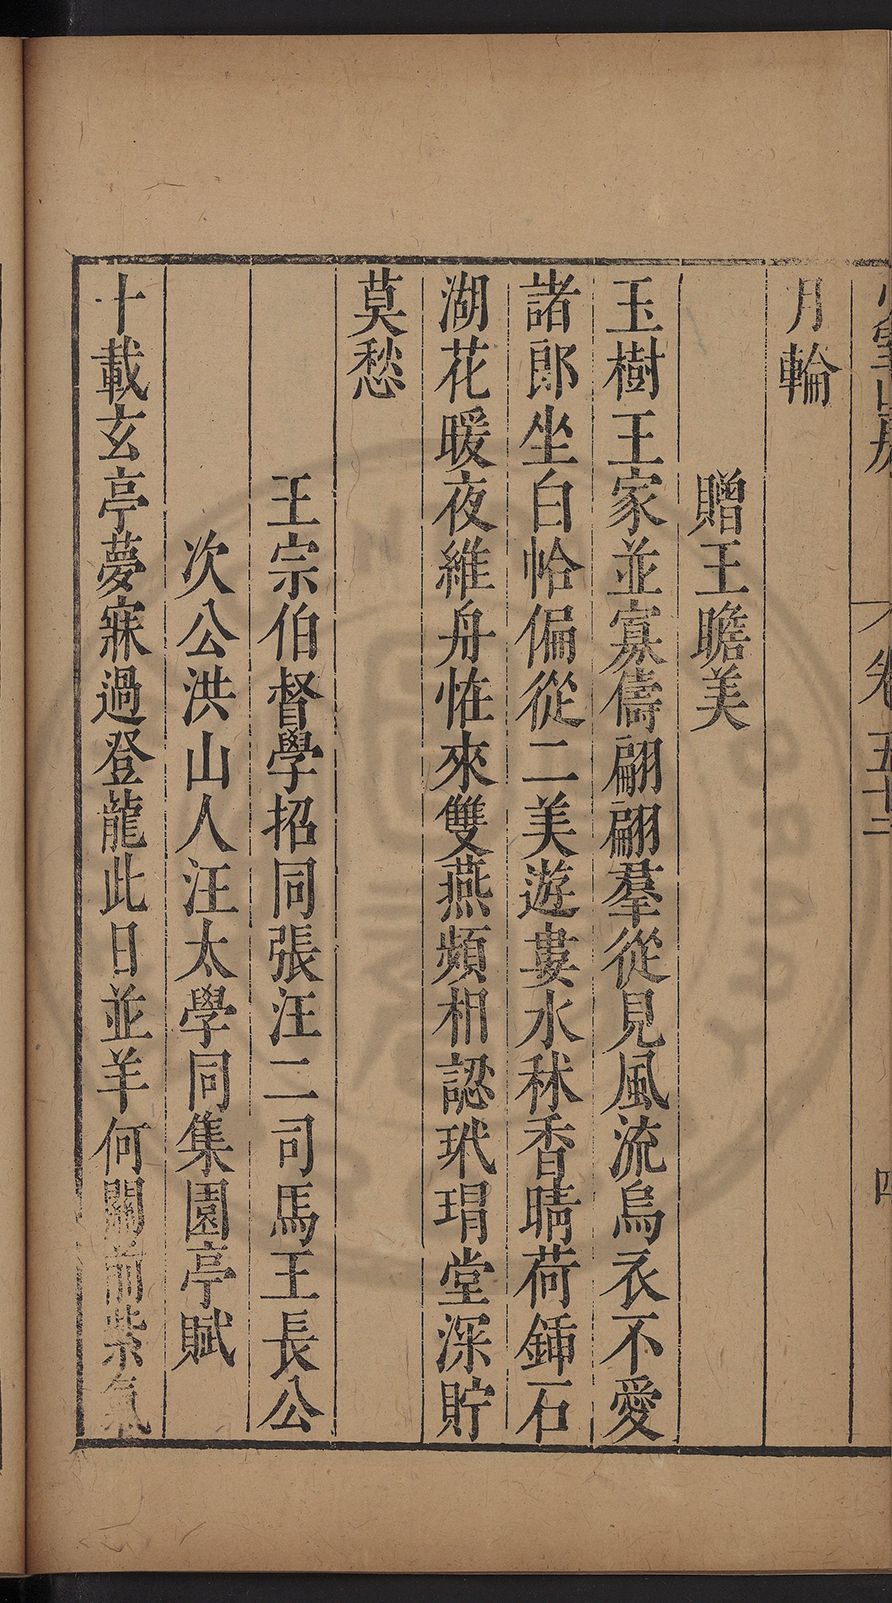 少室山房 卷五十三 四
月輪
贈王瞻美
玉樹王家並寡儔翩翩羣從見風流烏衣不愛
諸郎坐白恰偏從二美遊婁水秫香晴荷鍤石
湖花暖夜維舟恠來雙燕頻相認玳瑁堂深貯
莫愁
王宗伯督學招同張汪二司馬王長公
次公洪山人汪太學同集園亭賦
十載玄亭夢寐過登龍此日並羊何關前紫氣